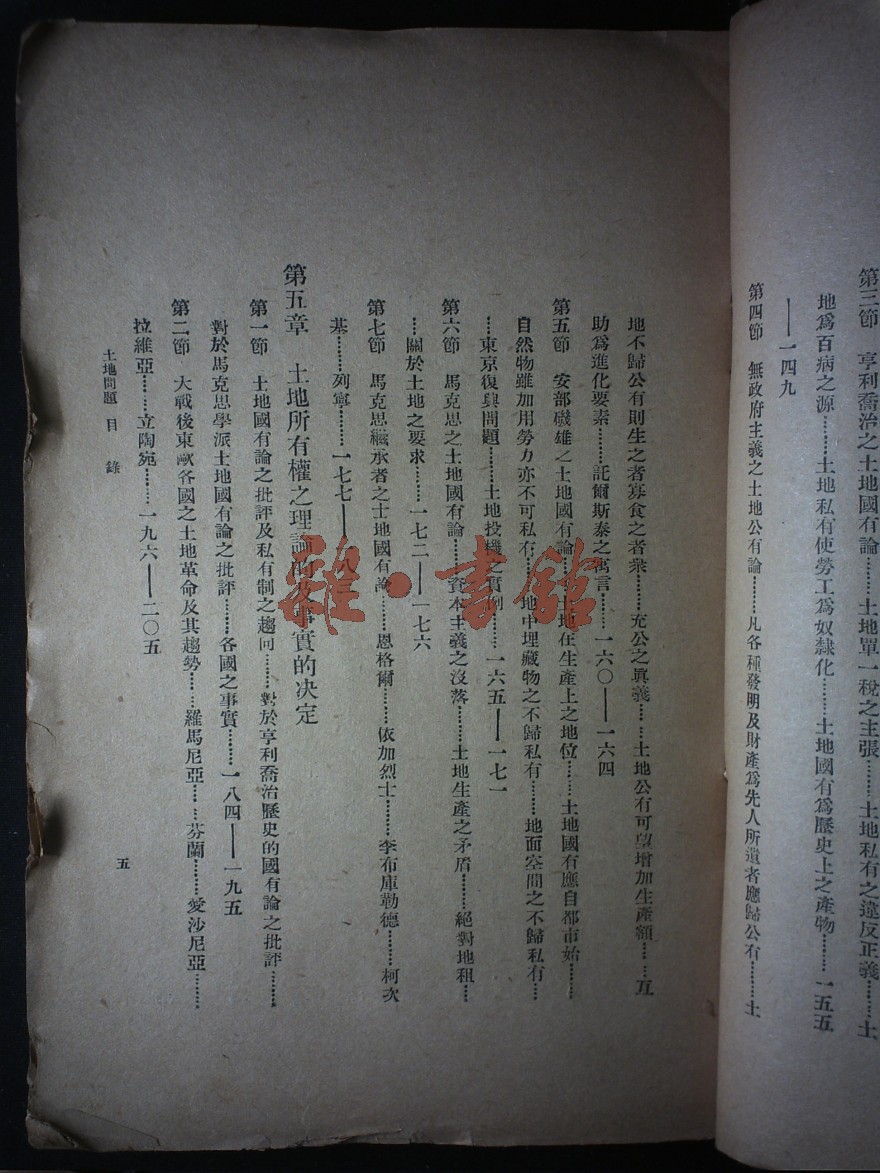 第三節　亨利喬治之土地國有論………土地單一稅之主張………土地私有之違反正義………土
地爲百病之源………土地私有使勞工爲奴隸化………土地國有爲歷史上之產物………一五五
——一四九
第四節　無政府主義之土地公有論………凡各種發明及財產爲先人所遺者應歸公有………土
地不歸公有則生之者寡食之者衆………充公之眞義………土地公有可望增加生產額………互
助爲進化要素………託爾斯泰之寓言………一六〇——一六四
第五節　安部磯雄之土地國有論………土地在生產上之地位………土地國有應自都市始………
自然物雖加用勞力亦不可私有………地中埋藏物之不歸私有………地面空間之不歸私有………
………東京復興問題………土地投機之實例………一六五——一七一
第六節　馬克思之土地國有論………資本主義之沒落………土地生產之矛盾………絕對地租………
………關於土地之要求………一七二——一七六
第七節　馬克思繼承者之土地國有論………恩格爾………依加烈士………李布庫勒德………柯次
基………列寧………一七七——一八三
第五章　土地所有權之理論的及事實的决定
第一節　土地國有論之批評及私有制之趨向………對於亨利喬治歷史的國有論之批評………
對於馬克思學派土地國有論之批評………各國之事實………一八四——一九五
第二節　大戰後東歐各國之土地革命及其趨勢………羅馬尼亞………芬蘭………愛沙尼亞………
拉維亞………立陶宛………一九六——二〇五
土地問題　目　錄
五
雜·書館